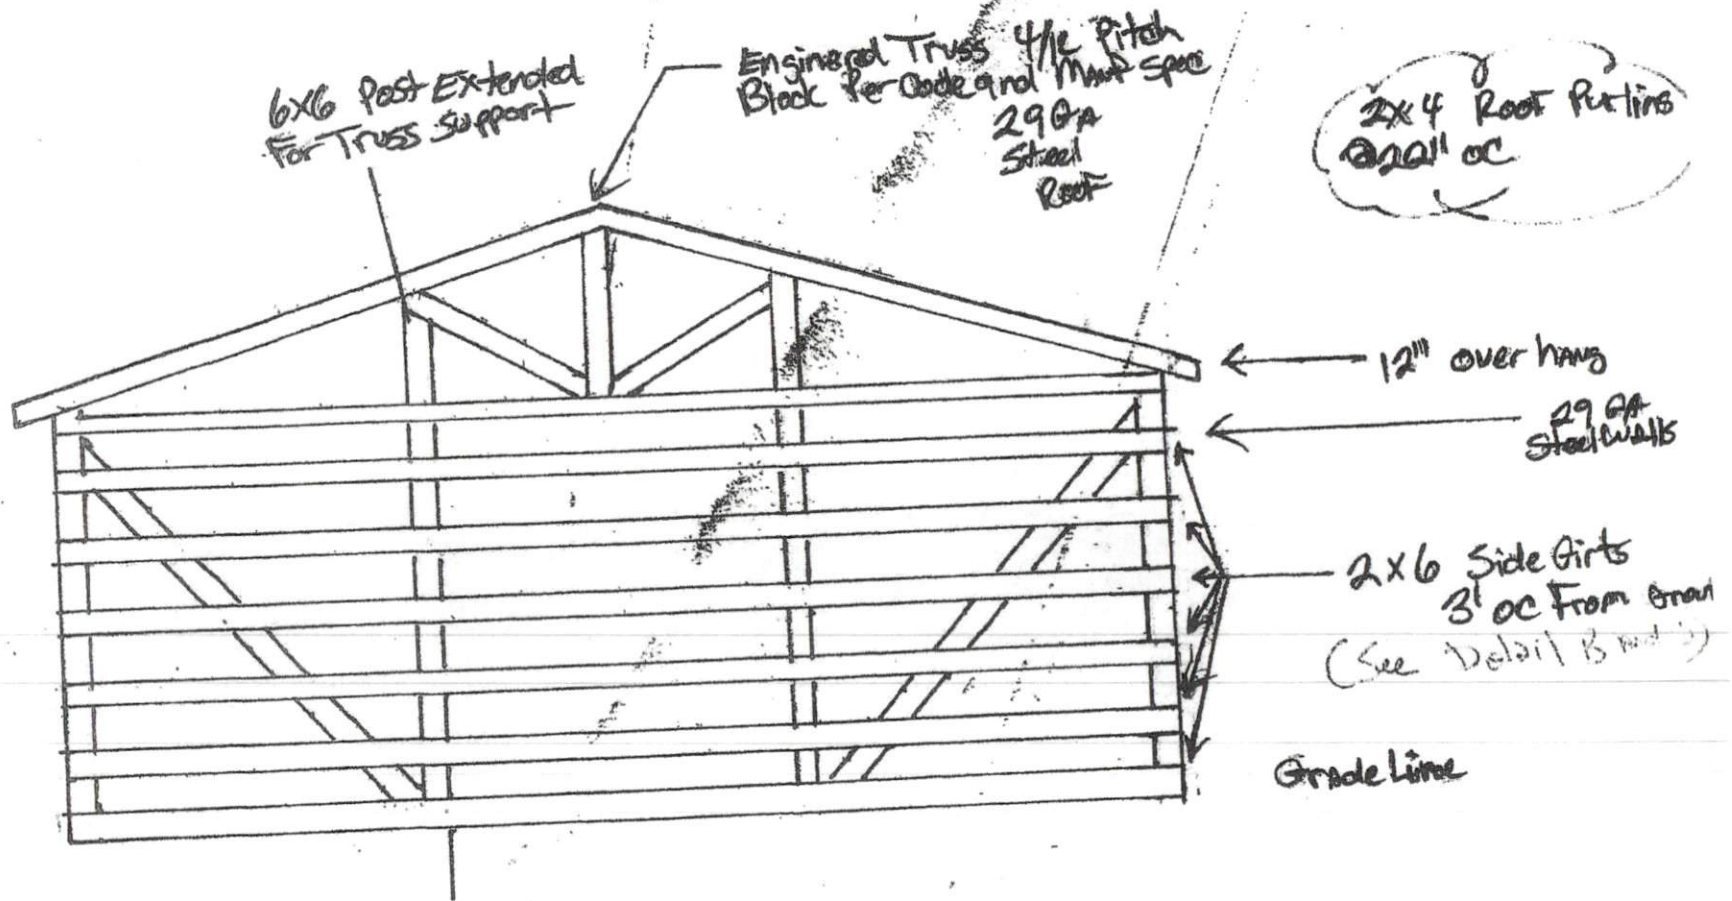 6x6 Post Extended
For Truss Support
Engineered Truss 4/12 Pitch
Block Per Code and Manf Spec
29 GA
Steel
Roof
2x4 Roof Purlins
OC
12" over hang
29 GA
Steel Walls
2x6 Side Girts
3' OC From
(See Detail B
Grade Line